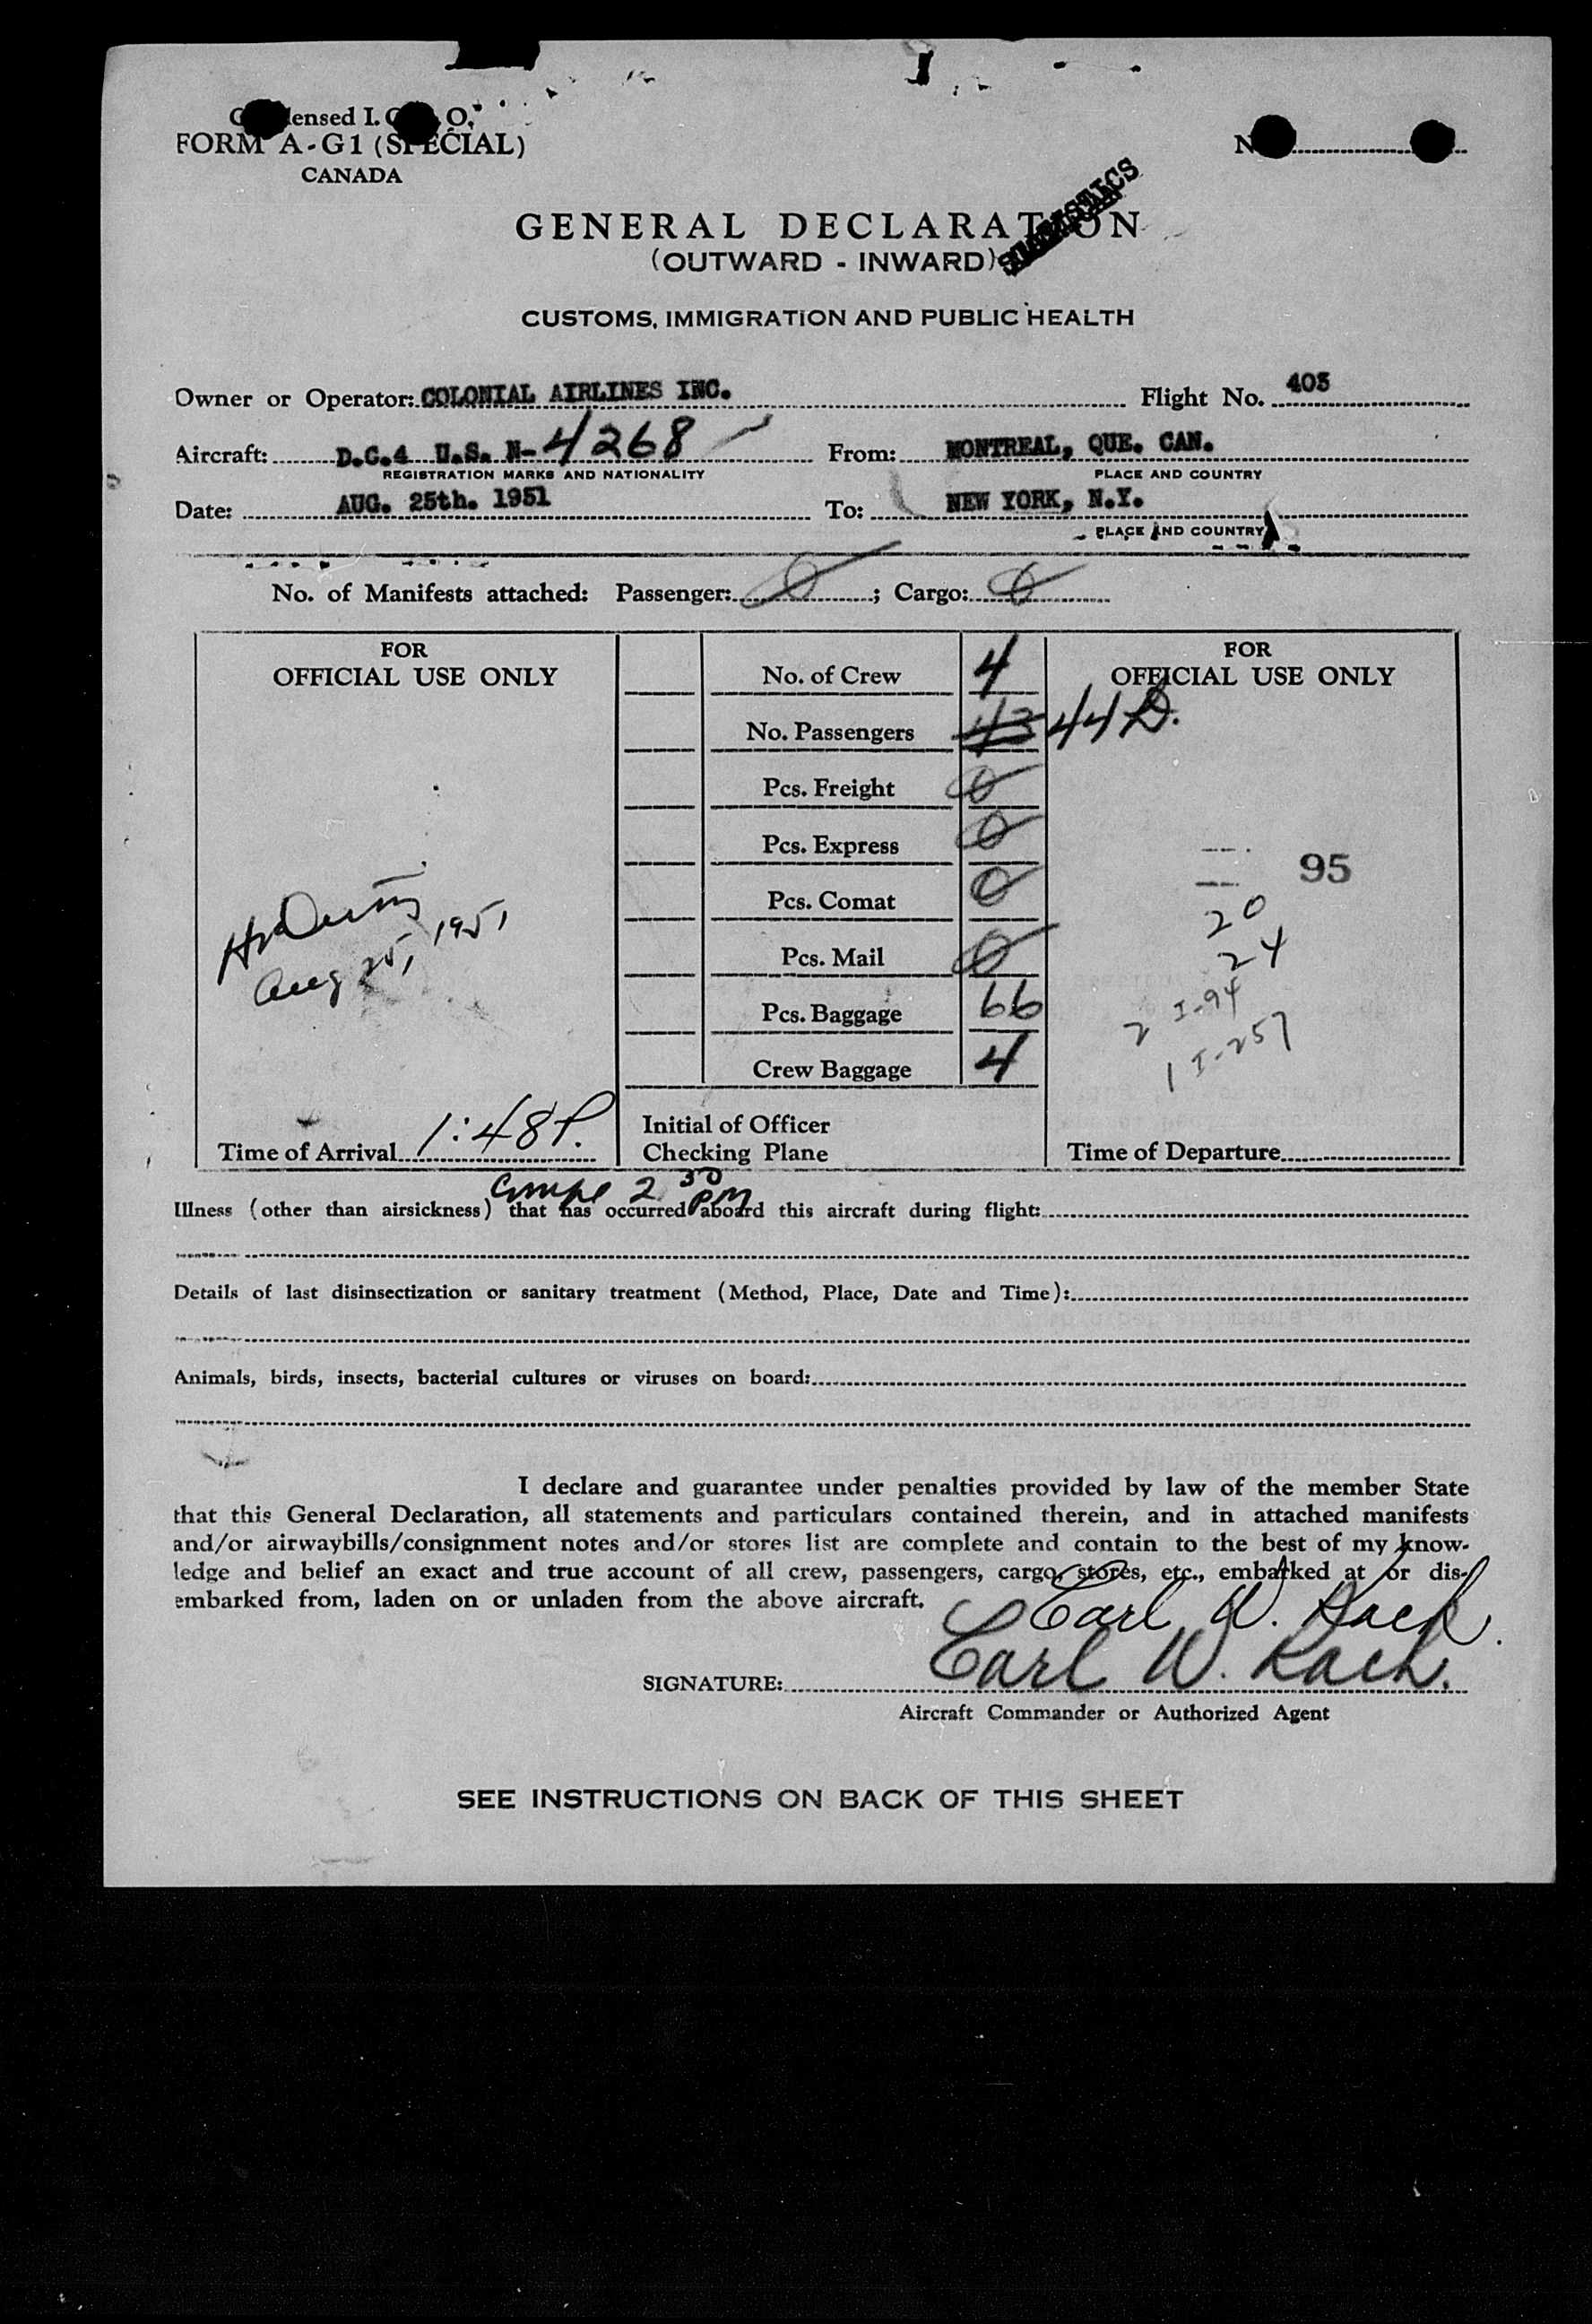 FORM A-G1 (SPECIAL)
CANADA
GENERAL DECLARATION
(OUTWARD - INWARD)
CUSTOMS, IMMIGRATION AND PUBLIC HEALTH
Owner or Operator: COLONIAL AIRLINES INC. Flight No. 403
Aircraft: D.C.4 U.S. N-4268 From: MONTREAL, QUE. CAN.
REGISTRATION MARKS AND NATIONALITY PLACE AND COUNTRY
Date: AUG. 25th. 1951 To: NEW YORK, N.Y.
PLACE AND COUNTRY
No. of Manifests attached: Passenger: 0; Cargo: 0
FOR
OFFICIAL USE ONLY
Aug 25, 1951
Time of Arrival 1:48P.
No. of Crew 4
No. Passengers 43 44
Pcs. Freight 0
Pcs. Express 0
Pcs. Comat 0
Pcs. Mail 0
Pcs. Baggage 66
Crew Baggage 4
Initial of Officer
Checking Plane
FOR
OFFICIAL USE ONLY
95
20
24
2 I-94
1 I-257
Time of Departure
2 30 PM
Illness (other than airsickness) that has occurred aboard this aircraft during flight:
Details of last disinsectization or sanitary treatment (Method, Place, Date and Time):
Animals, birds, insects, bacterial cultures or viruses on board:
I declare and guarantee under penalties provided by law of the member State
that this General Declaration, all statements and particulars contained therein, and in attached manifests
and/or airwaybills/consignment notes and/or stores list are complete and contain to the best of my know-
ledge and belief an exact and true account of all crew, passengers, cargo, stores, etc., embarked at or dis-
embarked from, laden on or unladen from the above aircraft.
Carl W.
SIGNATURE: Carl W.
Aircraft Commander or Authorized Agent
SEE INSTRUCTIONS ON BACK OF THIS SHEET